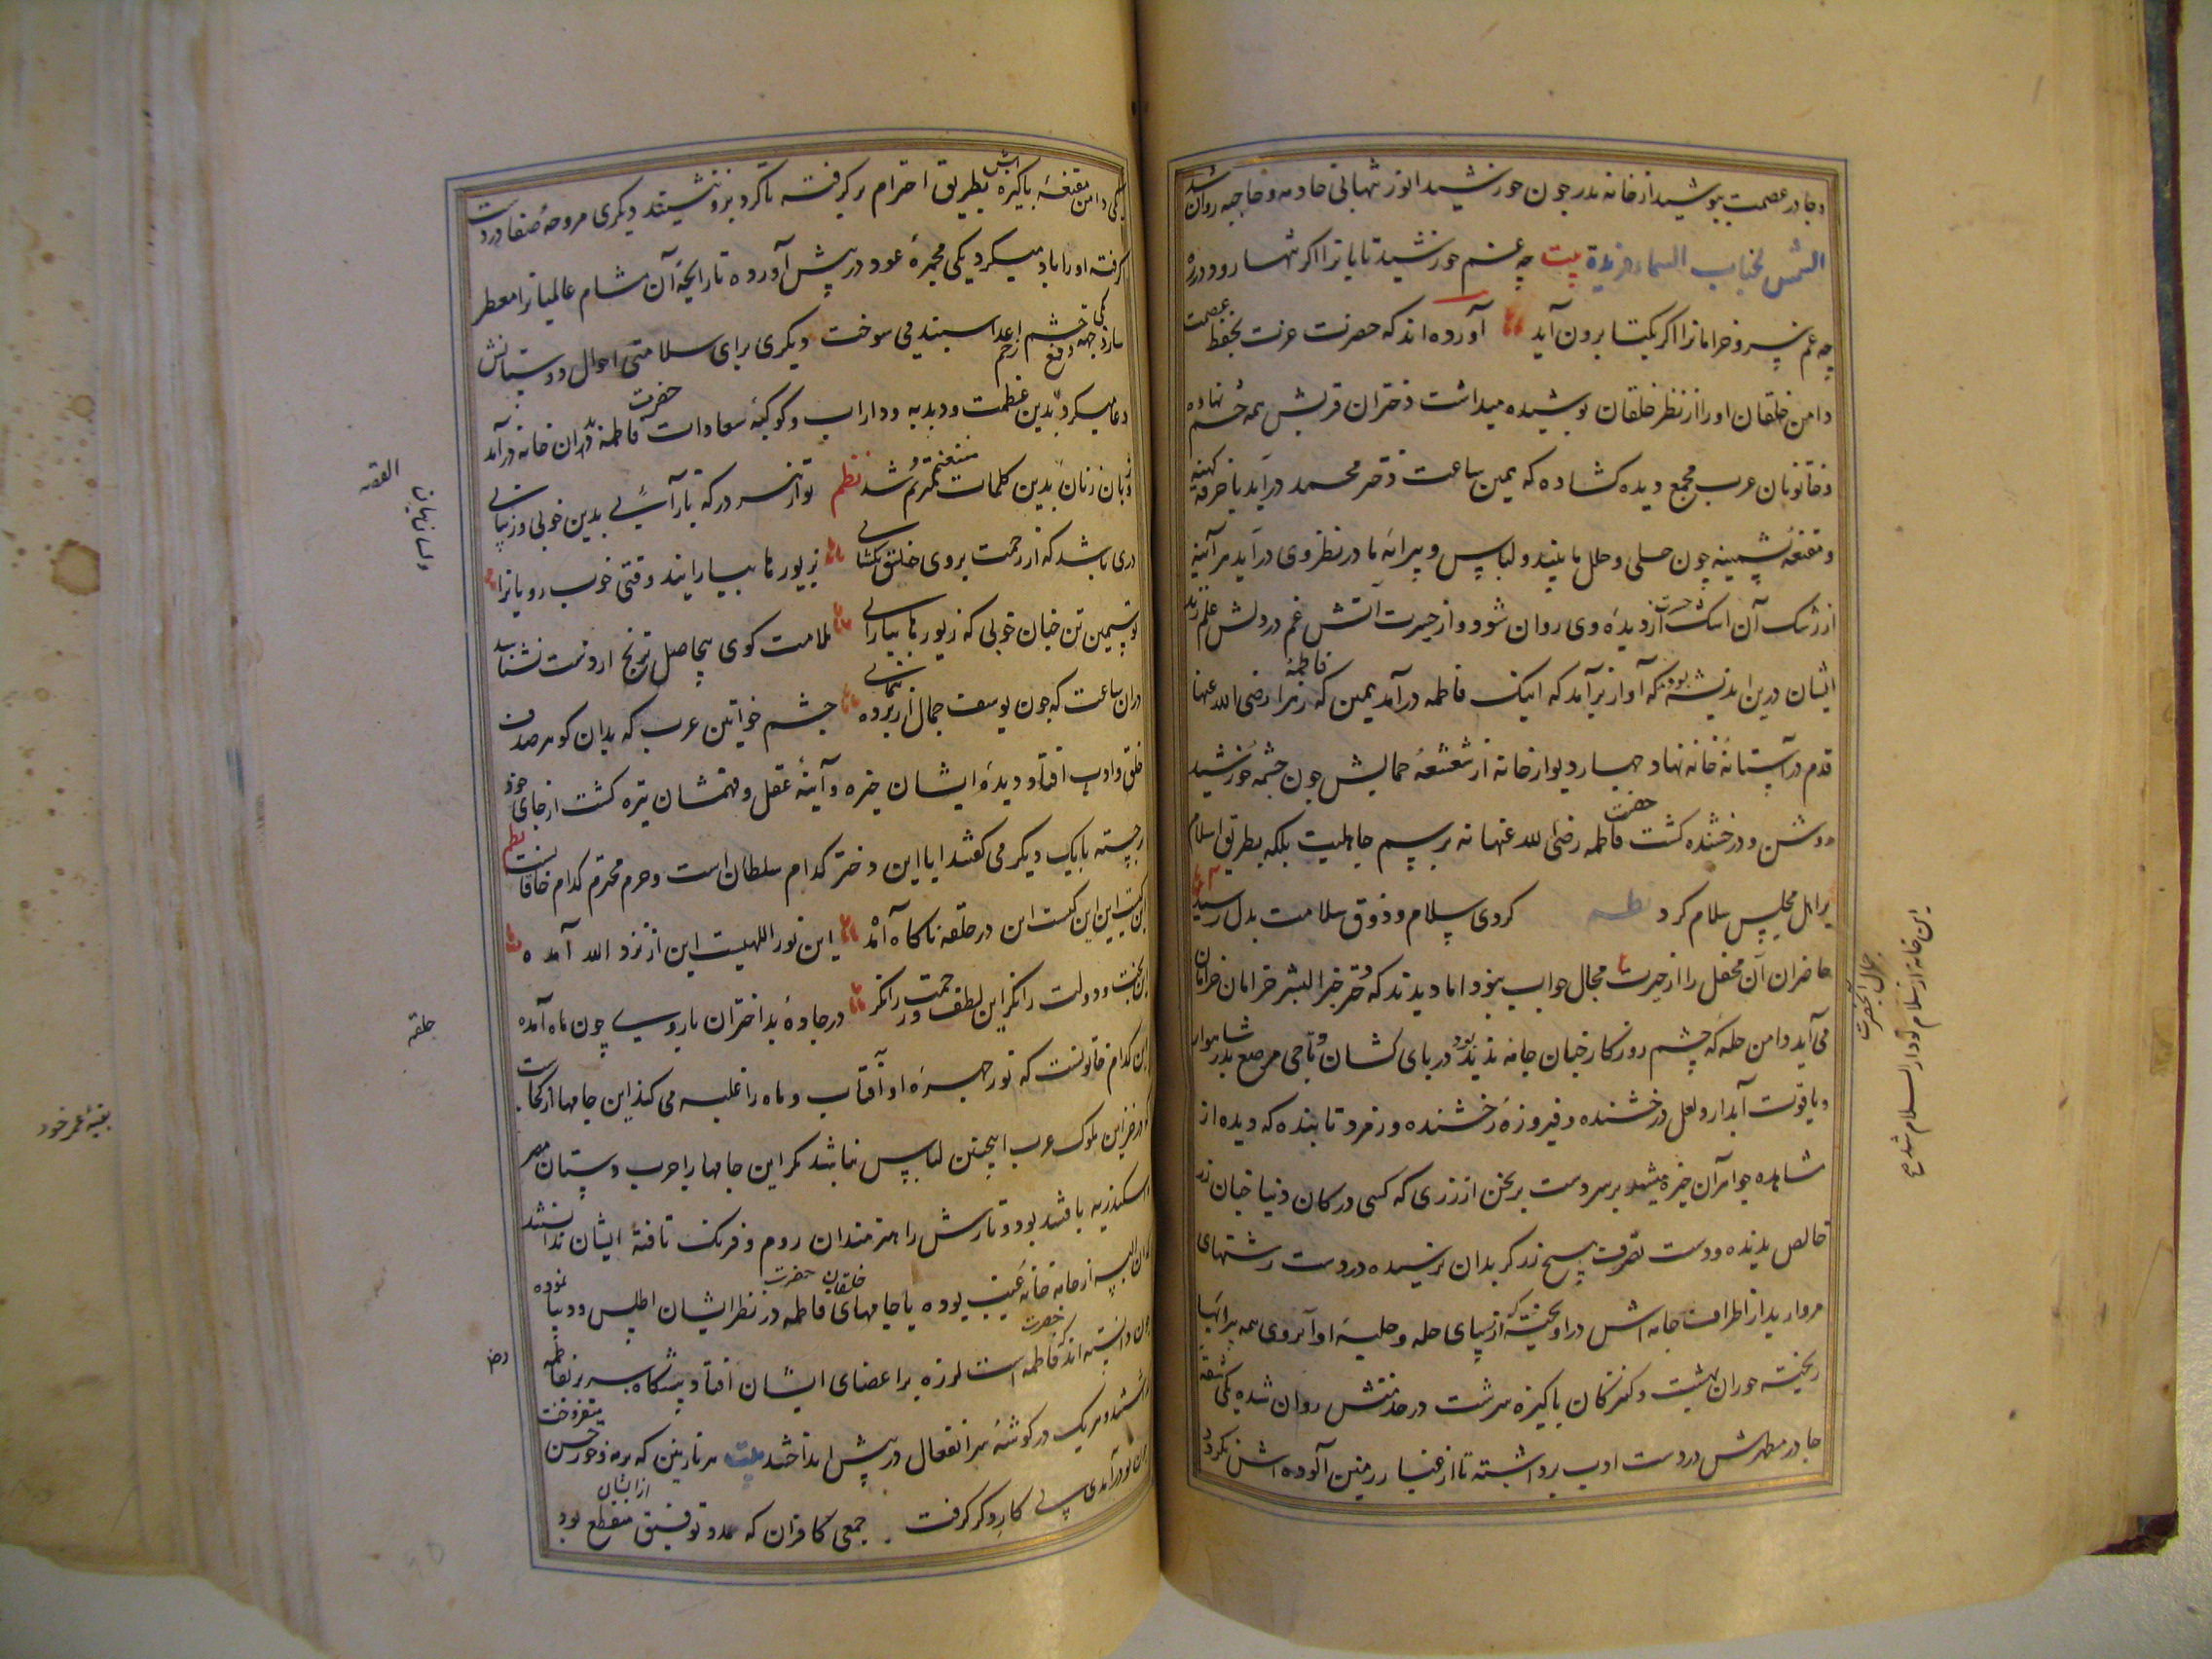 و چادر عصمت بپوشید از خانه بدر چون خورشید انور تنهایی خادمه و حاجبه روان شد
الشمس السماء فریدة بیت چه غم خورشید تابانرا اگر تنها رود در ره
چه غم سرو خرامانرا اگر یکتا برون آید آورده‌اند که حضرت عزت بحفظ عصمت
دامن خلقان او را از نظر خلقان پوشیده میداشت دختران قریش همه چشم نهاده
و خاتونان عرب مجمع دیده کشاده که همین ساعت دختر محمد درآید با خرقه کهنه
و مقنعه پشمینه چون حلی و حلل ما بیند و لباس و پیرایه ما در نظر وی درآید هر آینه
از رشک آن اشک حسرت از دیده وی روان شود و از حیرت آتش غم در دلش علم زند
ایشان درین اندیشه بودند که آواز برآمد که اینک فاطمه درآمد همین که فاطمهٔ زهرا رضی الله عنها
قدم در آستانهٔ خانه نهاد چهار دیوار خانه از شعشعهٔ جمالش چون چشمهٔ خورشید
روشن و درخشنده کشت حضرت فاطمه رضی الله عنها نه برسم جاهلیت بلکه بطریق اسلام
بر اهل مجلس سلام کرد نظم کردی سلام و ذوق سلامت بدل رسید
حاضران آن محفل را از حیرت مجال جواب نبود اما دیدند که دختر خیر البشر خرامان خرامان
می آید دامن حله که چشم روزکار چنان جامه ندیده بود در پای کشان و تاجی مرصع بدر شاهوار
و یاقوت آبدار و لعل درخشنده و فیروزهٔ رخشنده و زمرد تابنده که دیده از
مشاهده جواهر آن خیره میشد بر سر دست برنجن از زری که کسی در کان دنیا چنان زر
خالص ندیده و دست تصرف هیچ زرکر بدان نرسیده در دست رشتهای
مروارید از اطراف جامه‌اش درآویخته که از بهای حله و حلیهٔ او آبروی همه پیرایها
ریخته حوران بهشت و کنیزکان پاکیزه سرشت در خدمتش روان شده یکی شقهٔ
چادر مطهرش در دست ادب برداشته تا از غبار زمین آلوده‌اش نکردد
جمال آنحضرت
این خانه از سلام تو دار السلام شد
یکی دامن مقنعهٔ پاکیزه‌اش بطریق احترام برکرفته تا کرد برو ننشیند دیکری مروحهٔ صفا در دست
کرفته او را باد میکرد یکی مجمرهٔ عود در پیش آورده تا رایحهٔ آن مشام عالمیانرا معطر
سازد یکی جهه دفع چشم زخم اعدا سپند می سوخت دیکری برای سلامتی احوال دوستانش
دعا میکرد بدین عظمت و دبدبه و داراب و کوکبهٔ سعادات حضرت فاطمه دران خانه درآمد
زبان زنان بدین کلمات مترنم شد نظم تو از هر در که باز آئی بدین خوبی و زیبائی
دری باشد که از رحمت بروی خلق بکشائی بزیورها بیارایند وقتی خوب رویانرا
تو سیمین تن چنان خوبی که زیورها بیارائی ملامت کوی بیحاصل ترنج از دست نشناسد
دران ساعت که چون یوسف جمال از پرده بنمائی چشم خواتین عرب که بدان کوهر صدف
خلق و ادب افتاد دیدهٔ ایشان خیره و آینهٔ عقل و فهمشان تیره کشت از جای خود
برجسته با یک دیکر می کفتند ایا این دختر کدام سلطان است و حرم محترم کدام خاقانست نظم
این کیست این این کیست این در حلقه ناکاه آمده این نور اللهیست این از نزد الله آمده
این بخت و دولت را نکر این لطف و رحمت را نکر در چاوهٔ بد اختران با روی چون ماه آمده
این کدام خاتونست که نور چهرهٔ او آفتاب و ماه را غلبه می کند این جامها از کجاست
که در خزاین ملوک عرب اینچنین لباس نباشد مکر این جامها را چرب دستان مصر
و اسکندریه بافته بود و تارش را هنرمندان روم و فرنک تافته ایشان ندانستند
که آن البسه از جامه خانهٔ غیب بوده یا جامهای خلقان حضرت فاطمه در نظر ایشان اطلس و دیبا نموده
چون دانسته‌اند که حضرت فاطمه است لرزه بر اعضای ایشان افتاد پیشکاه سریر بفاطمه
و هر یک در کوشهٔ سر انفعال در پیش انداختند بیت هر نازنین که بر مه و خور حسن میفروخت
چون تو درآمدی پی کار دکر کرفت جمعی کافران که مدد توفیق از ایشان منقطع بود
حلقه
رض
بقیهٔ عمر خود